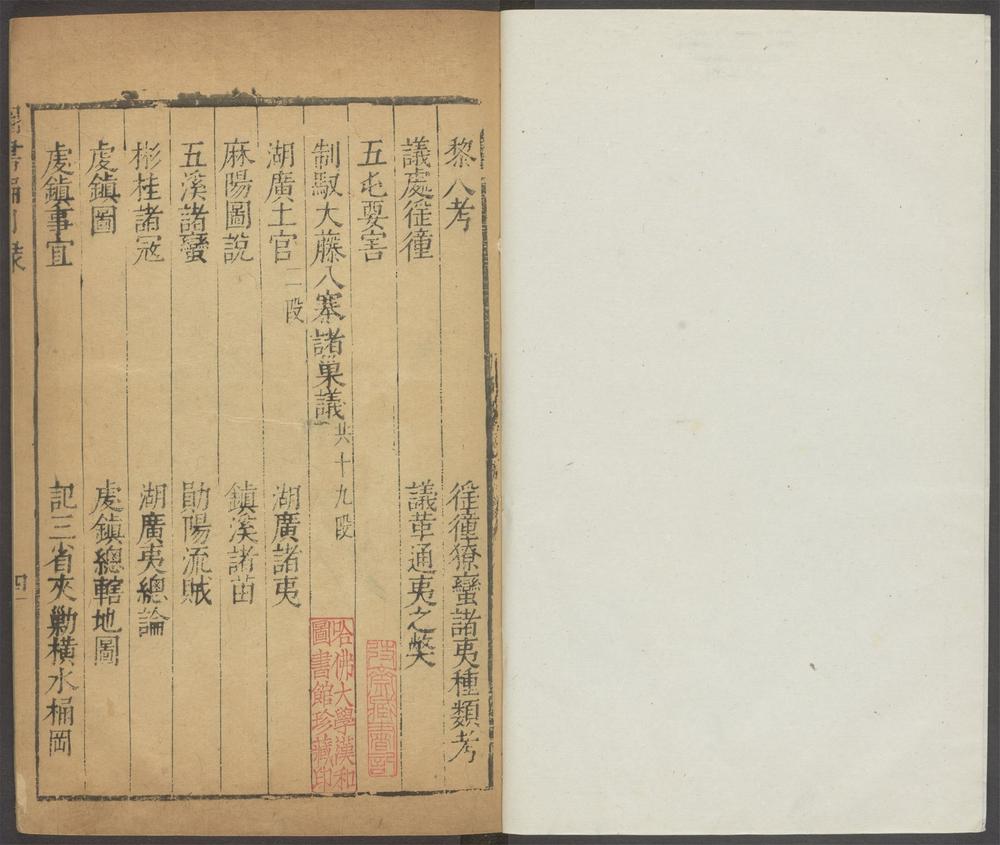 黎人考
猺獞獠蠻諸夷種類考
議處猺獞
議革通夷之獘
五屯要害
制馭大藤八寨諸巢議 共十九段
湖廣土官 二段
湖廣諸夷
麻陽圖說
鎮溪諸苗
五溪諸蠻
鄖陽流賊
彬桂諸冦
湖廣夷總論
虔鎮圖
虔鎮總轄地圖
虔鎮事宜
記三省夾勦橫水桶岡
圖書編目錄
四
哈佛大學漢和
圖書館珍藏印